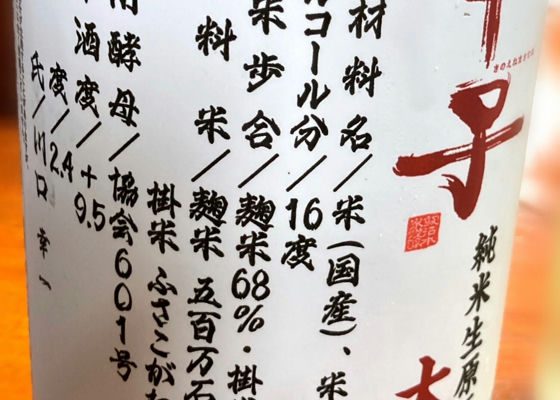 子
きのえねまさむね
純米生原
材料名/米(国産)、米
コール分/16度
米歩合/麹米68%・掛
料 米/麹米 五百万石
掛米 ふさこがね
用酵母/協会601号
酒度/+9.5
度/2.4
氏/川口 幸一